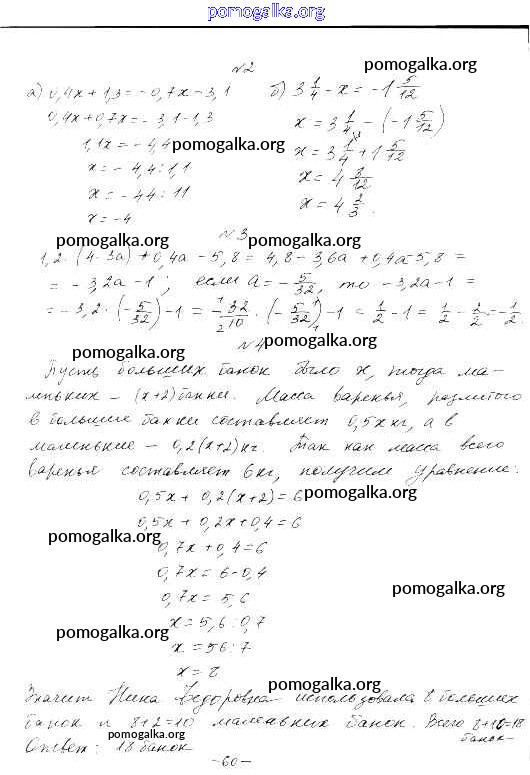 pomogalka.org
№2
pomogalka.org
а) 0,4x + 1,3 = -0,7x - 3,1 б) 3 1/4 - x = -1 5/12
0,4x + 0,7x = -3,1 - 1,3 x = 3 1/4 - (-1 5/12)
1,1x = -4,4 pomogalka.org x = 3 1/4 + 1 5/12
x = -4,4 : 1,1 x = 4 8/12
x = -44 : 11 x = 4 2/3.
x = -4
№3
pomogalka.org pomogalka.org
1,2 · (4 - 3a) + 0,4a - 5,8 = 4,8 - 3,6a + 0,4a - 5,8 =
= -3,2a - 1; если a = -5/32, то -3,2a - 1 =
= -3,2 · (-5/32) - 1 = -32/10 · (-5/32) - 1 = 1/2 - 1 = 1/2 - 2/2 = -1/2.
№4
pomogalka.org pomogalka.org
Пусть больших банок было x, тогда ма-
леньких - (x+2) банки. Масса варенья, разлитого
в большие банки составляет 0,5x кг, а в
маленькие - 0,2(x+2) кг. Так как масса всего
варенья составляет 6 кг, получим уравнение:
0,5x + 0,2(x+2) = 6 pomogalka.org
0,5x + 0,2x + 0,4 = 6
pomogalka.org
0,7x + 0,4 = 6
0,7x = 6 - 0,4
pomogalka.org
0,7x = 5,6
x = 5,6 : 0,7
pomogalka.org
x = 56 : 7
x = 8
pomogalka.org
Значит Нина Федоровна использовала 8 больших
банок и 8+2=10 маленьких банок. Всего 8+10=18
банок
pomogalka.org
Ответ: 18 банок
-60-